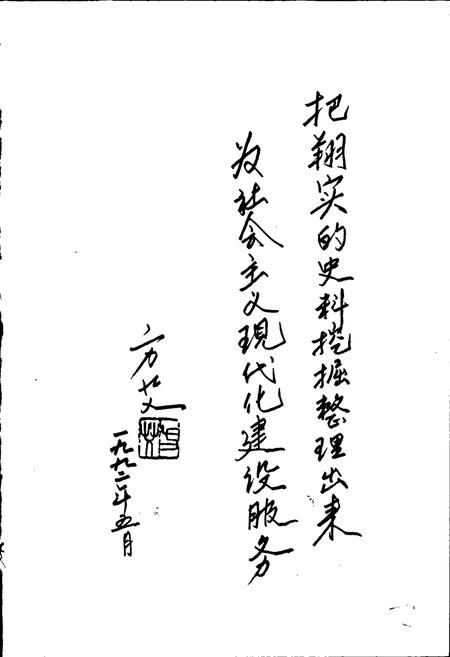 把翔实的史料挖掘整理出来
为社会主义现代化建设服务
方艾
一九九二年五月